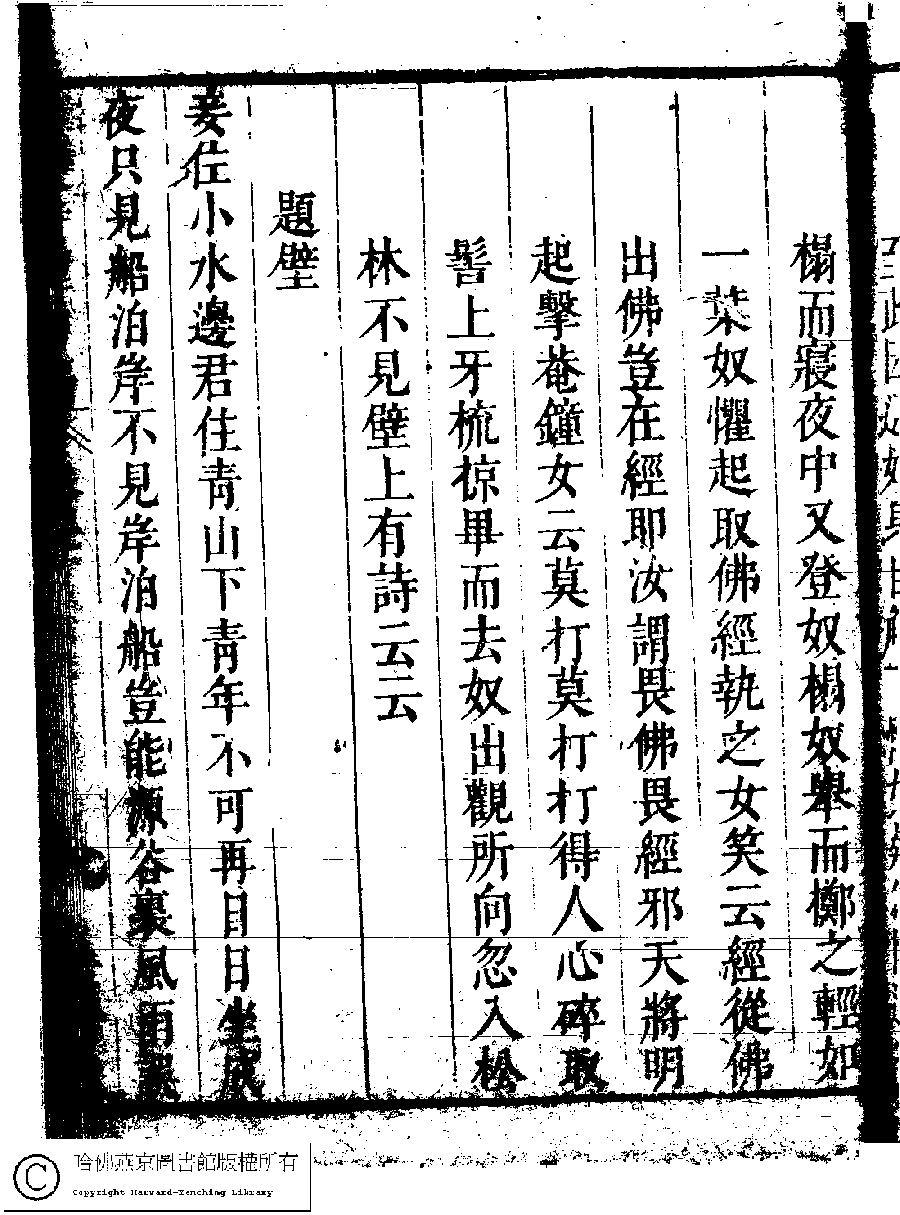 榻而寢夜中又登奴榻奴舉而擲之輕如
一葉奴懼起取佛經執之女笑云經從佛
出佛豈在經耶汝謂畏佛畏經邪天將明
起擊菴鐘女云莫打莫打打得人心碎取
髻上牙梳掠畢而去奴出觀所向忽入松
林不見壁上有詩云云
題壁
妾住小水邊君住青山下青年不可再日日坐成
夜只見船泊岸不見岸泊船豈能源谷裏風雨誤
哈佛燕京圖書館版權所有
Copyright Harvard-Yenching Library